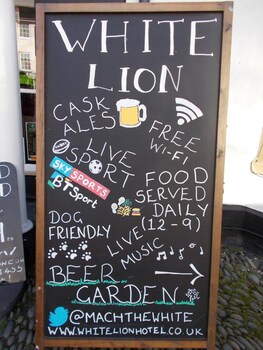 WHITE
LION
CASK
ALES
FREE
Wi-Fi
LIVE
SPORT
SKY SPORTS
BT Sport
FOOD
SERVED
DAILY
(12-9)
DOG
FRIENDLY
LIVE
MUSIC
BEER
GARDEN
@MACHTHEWHITE
WWW.WHITELIONHOTEL.CO.UK